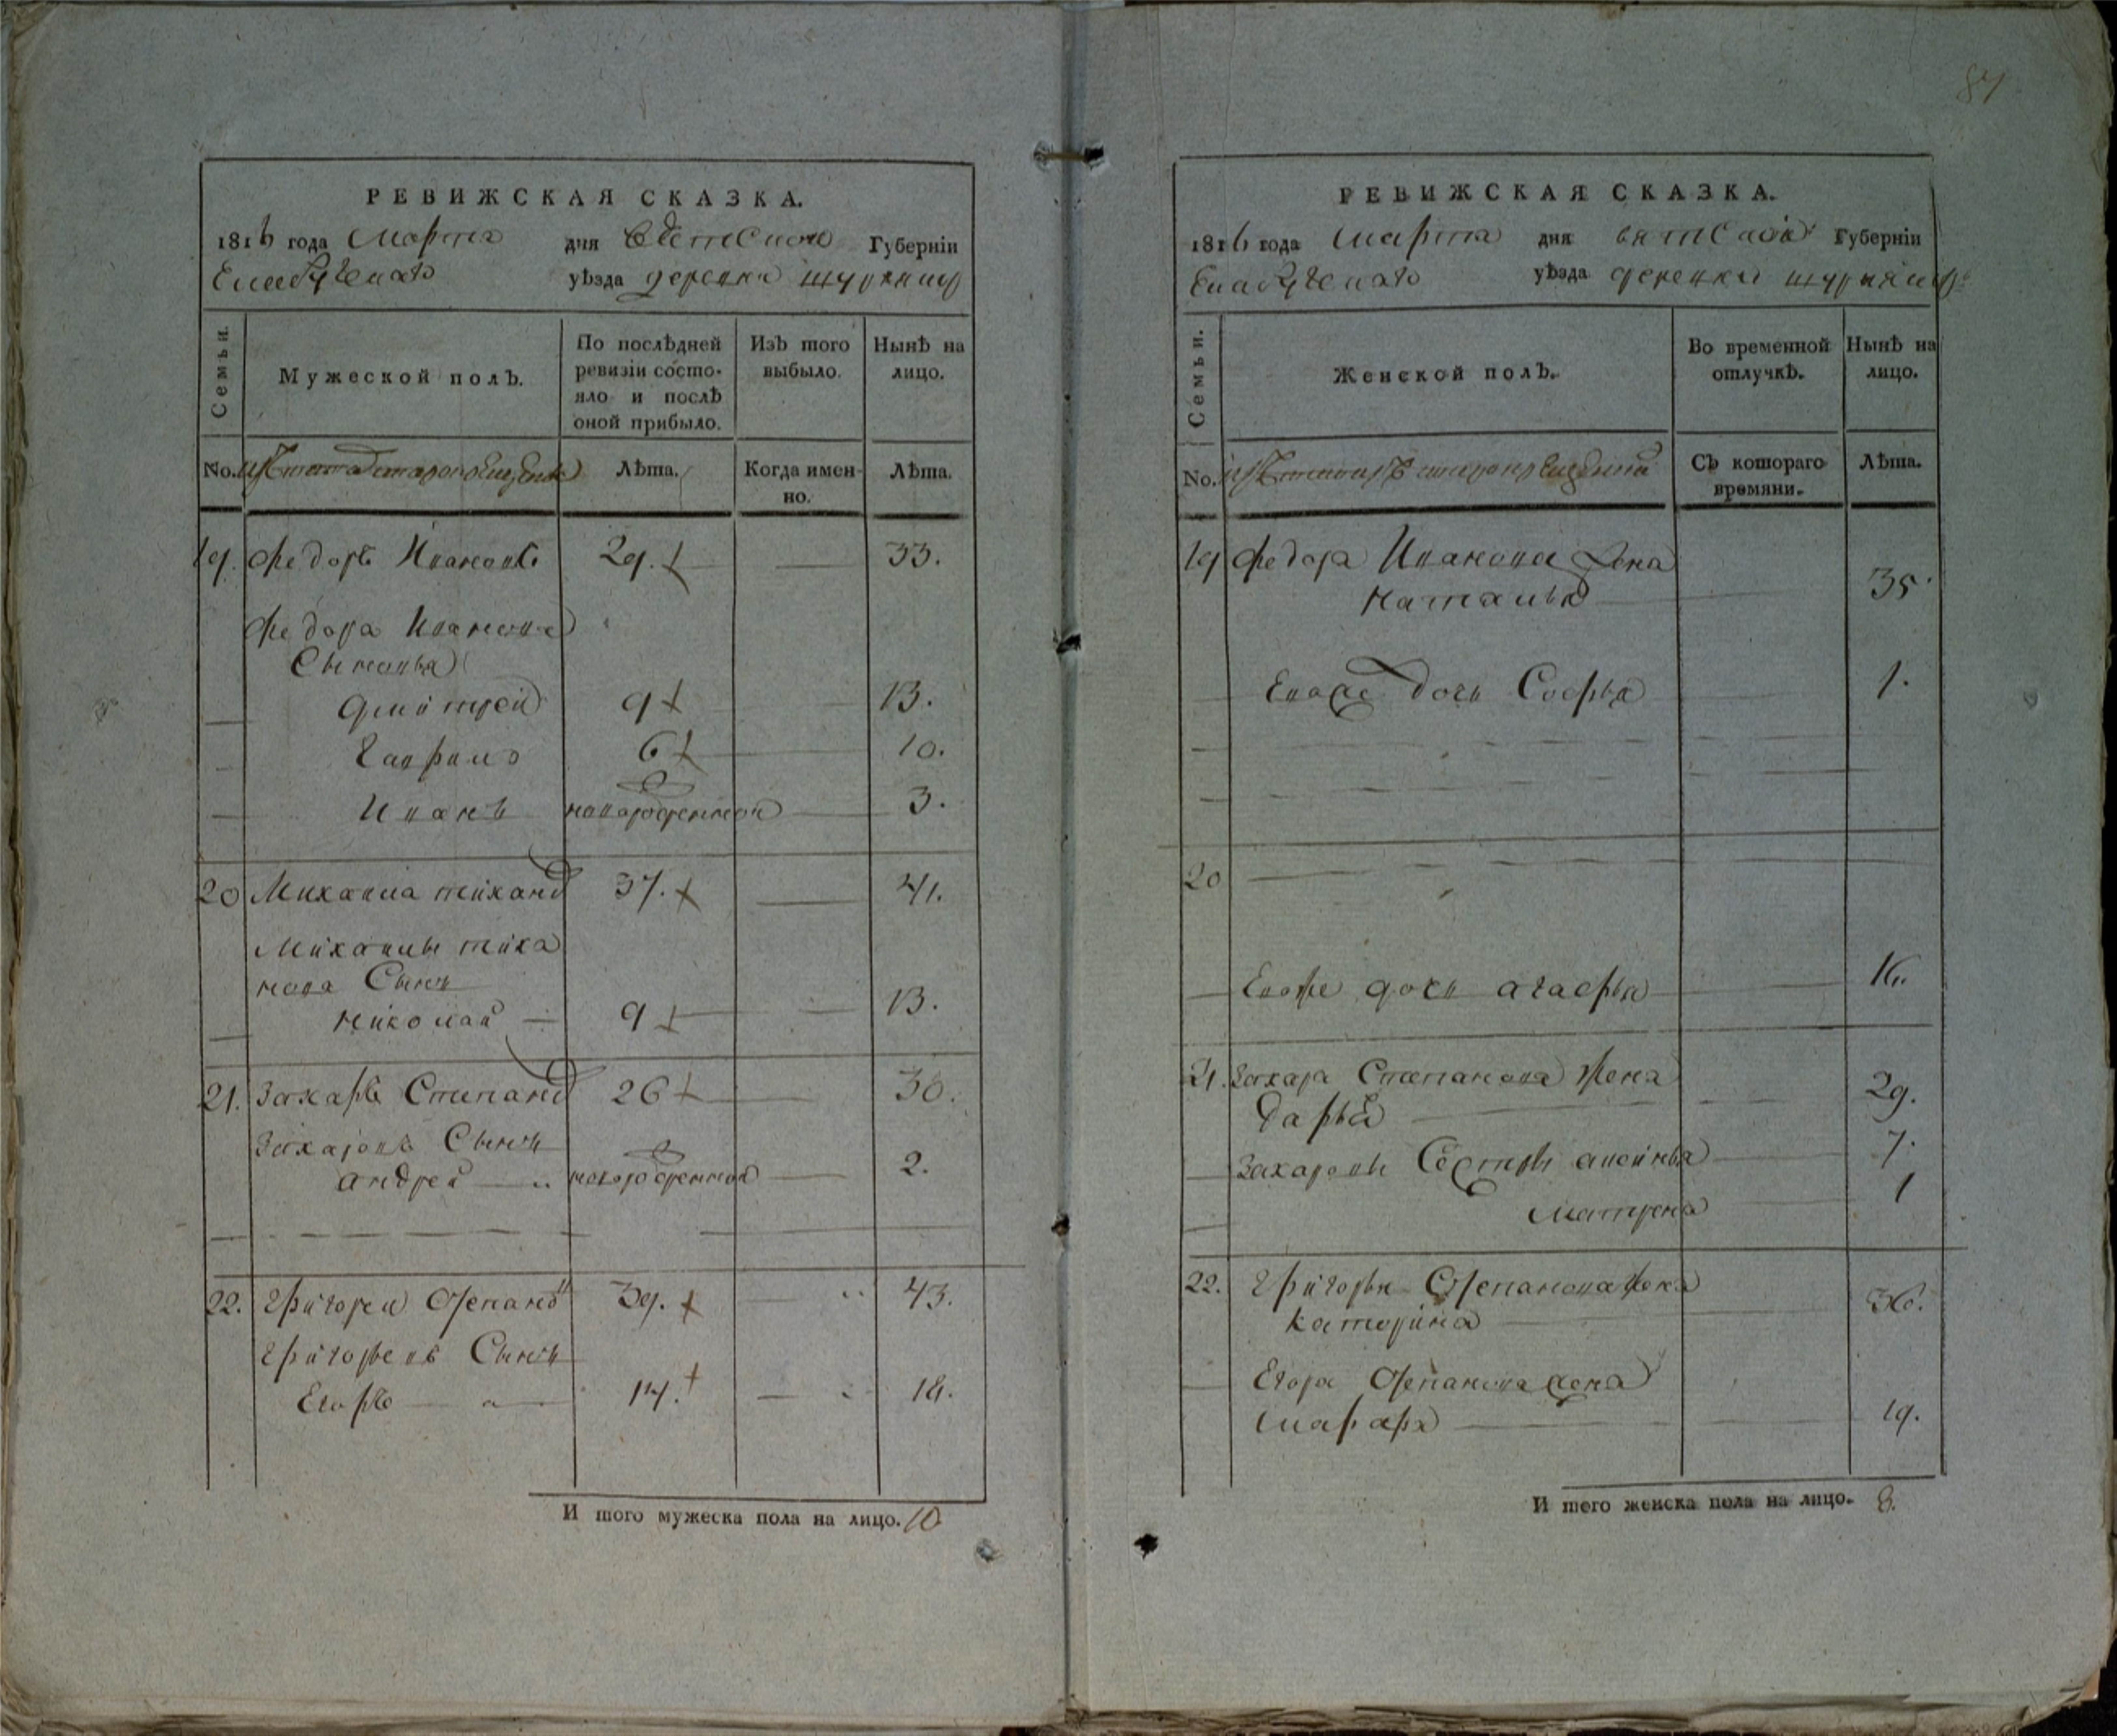 84
РЕВИЖСКАЯ СКАЗКА.
1816 года Марта дня Вятской Губерніи
Елабужскаго уѣзда деревни
Семьи.
Мужеской полъ.
По послѣдней ревизіи состо-
яло и послѣ
оной прибыло.
Изъ того
выбыло.
Нынѣ на
лицо.
No. Изъ татаръ старокрещенъ
Лѣта.
Когда имен-
но.
Лѣта.
19. Федоръ Ивановъ 29. 33.
Федора Иванова
Сыновья
Дмитрей 9 13.
Гаврило 6 10.
Иванъ новорожденной 3.
20 Михаила тихановъ 37. 41.
Михаилы тиха
нова Сынъ
Николай 9 13.
21. Захаръ Степановъ 26 30.
Захаровъ Сынъ
Андрей новорожденной 2.
22. Григорей Степановъ 39. 43.
Григорьевъ Сынъ
Егоръ 14. 18.
И того мужеска пола на лицо. 10
РЕВИЖСКАЯ СКАЗКА.
1816 года Марта дня вятской Губерніи
Елабужскаго уѣзда деревни
Семьи.
Женской полъ.
Во временной
отлучкѣ.
Нынѣ на
лицо.
No. Изъ татаръ старокрещенъ
Съ котораго
времяни.
Лѣта.
19 Федора Иванова жена
Наталья 35
Евоже дочь Софья 1.
20
Евоже дочь агафья 16.
21. Захара Степанова жена
Дарья 29.
Захаровы Сестры 7.
Матрена 1
22. Григорья Степанова жена
Катерина 36.
Егора Степанова жена
19.
И того женска пола на лицо. 8.